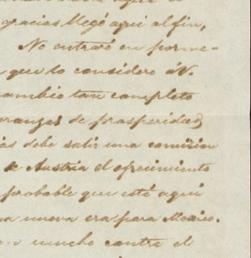 gracias llegó aqui al fin,
No entraré en porme-
que lo considero á V.
cambio tan completo
oranzas de prosperidad
debe salir una comision
de Austria el ofrecimiento
probable que esté aqui
nueva era para Mexico.
mucho contra el